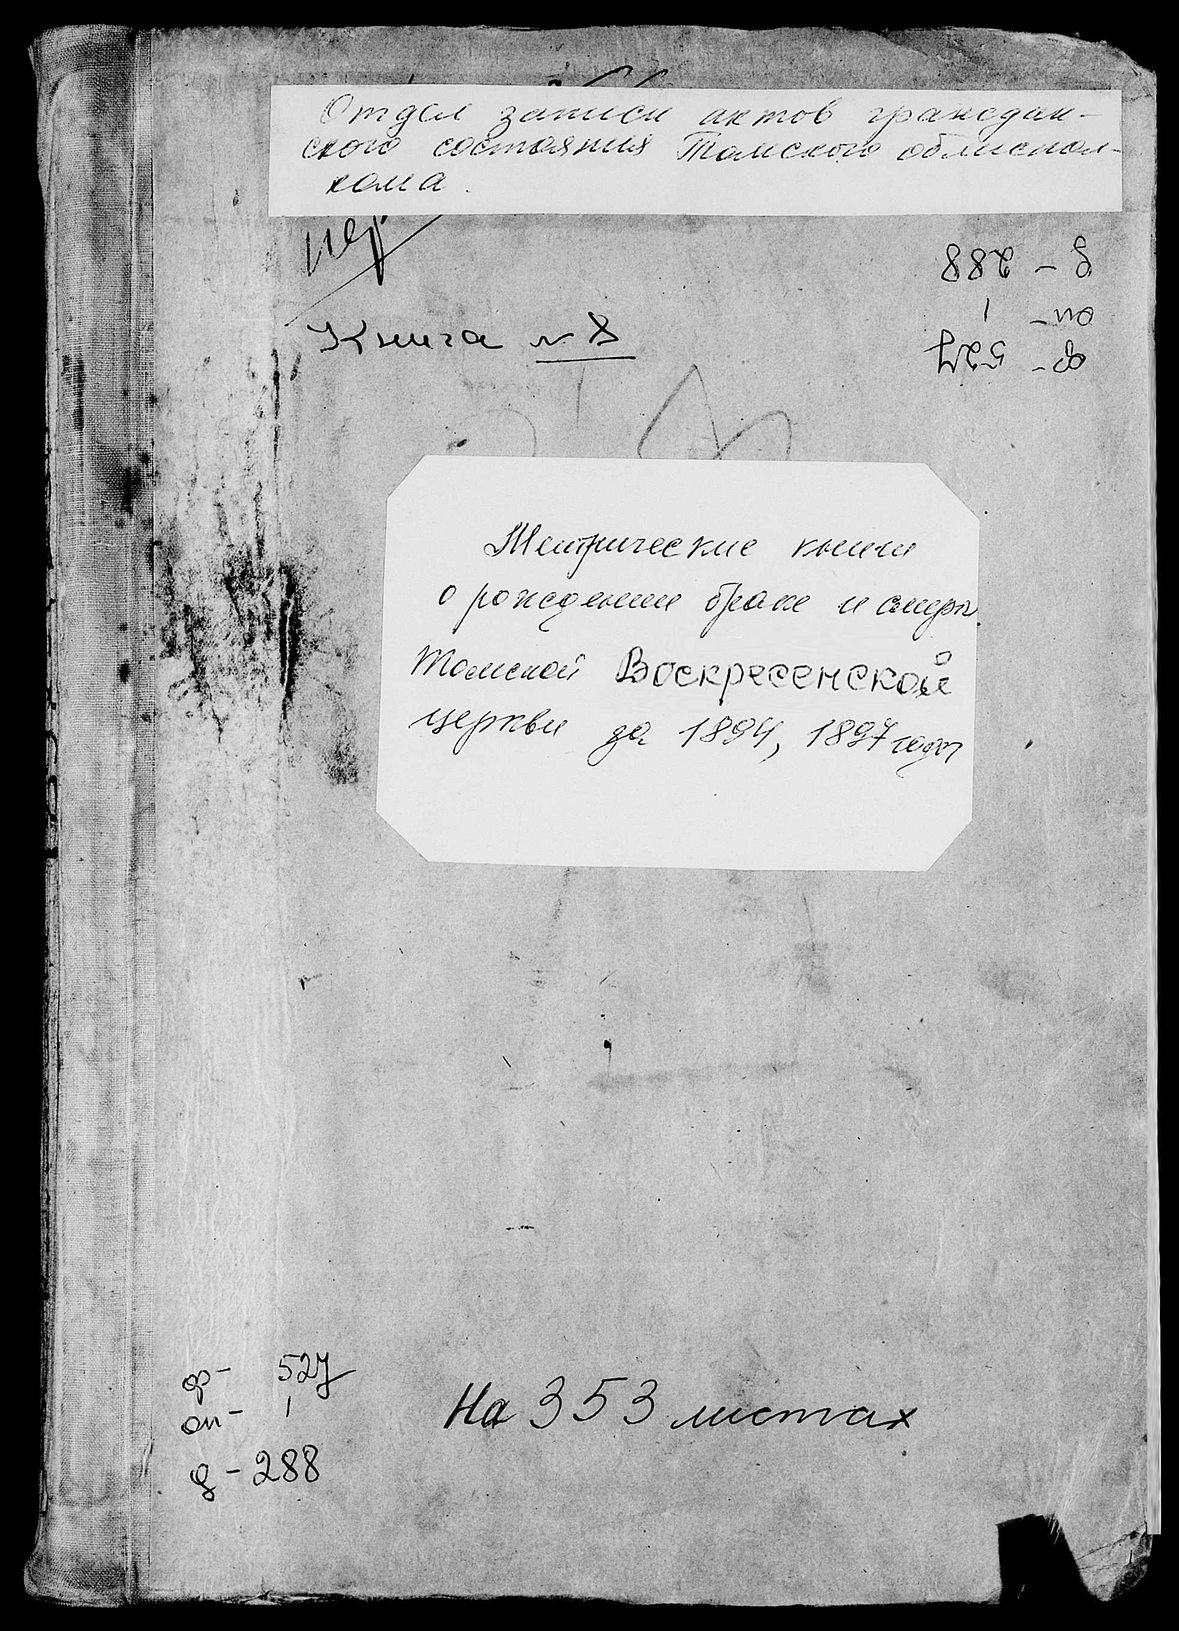 Отдел записи актов граждан-
ского состояния Томского облиспол-
кома.
Книга № 8
д - 288
оп - 1
ф - 527
Метрические книги
о рождении браке и смерт.
Томской Воскресенской
церкви за 1894, 1897 годы
ф - 527
оп - 1
д - 288
На 353 листах